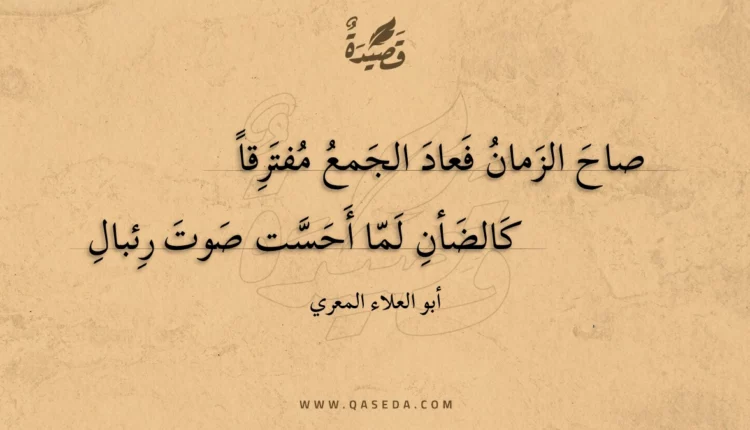 قَصِيدَةٌ
صاحَ الزَمانُ فَعادَ الجَمعُ مُفتَرِقاً
كَالضَأنِ لَمّا أَحَسَّت صَوتَ رِئبالِ
أبو العلاء المعري
WWW.QASEDA.COM